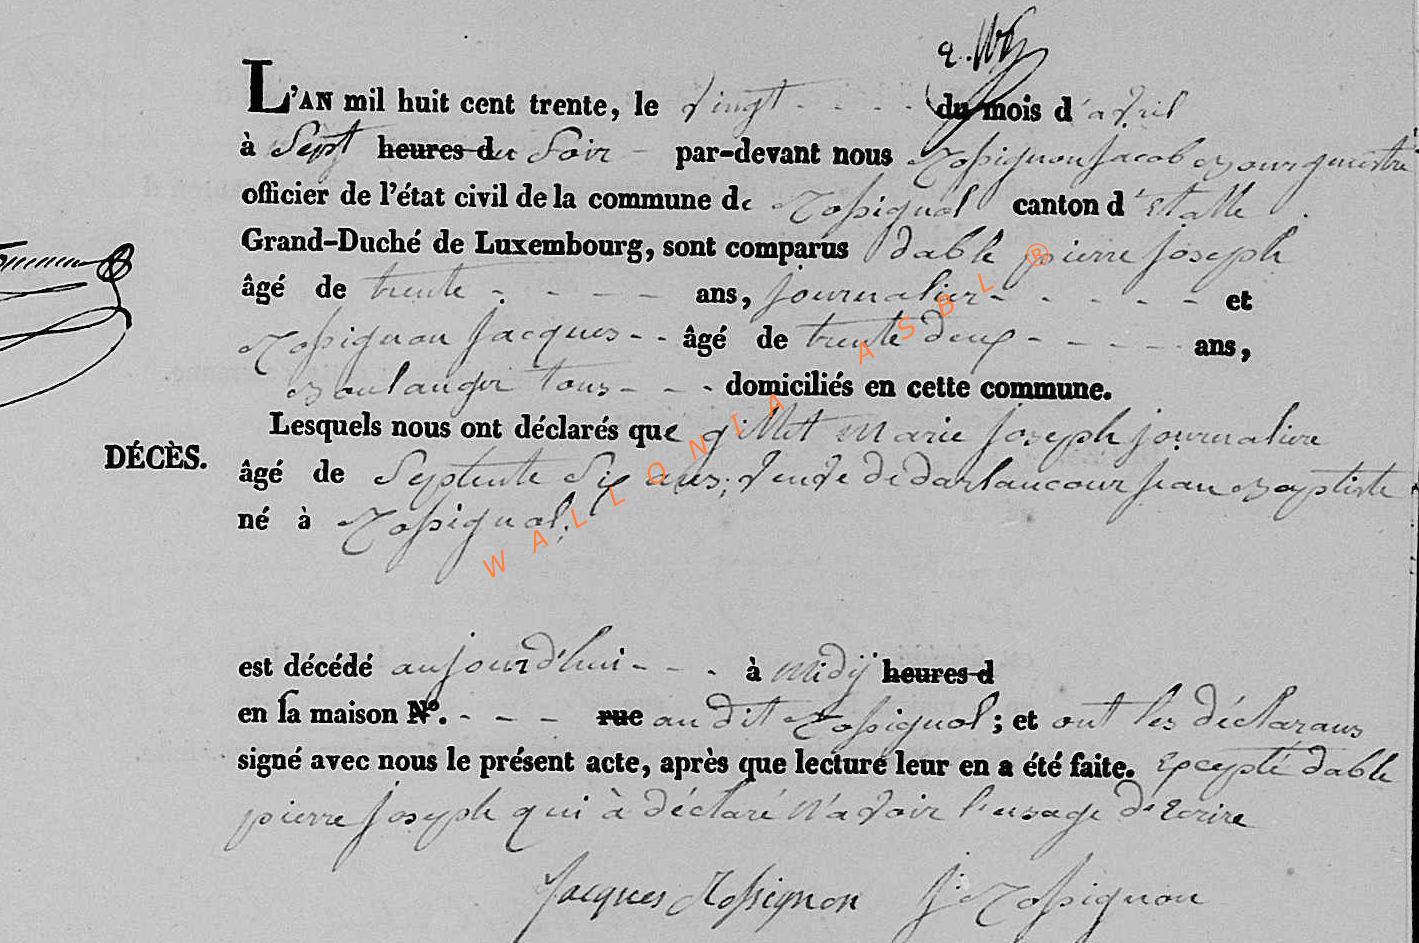 L'AN mil huit cent trente, le vingt - - - - du mois d'avril
à Sept heures du Soir - par-devant nous Rossignon Jacob Bourgmestre
officier de l'état civil de la commune de Rossignol canton d'Etalle
Grand-Duché de Luxembourg, sont comparus dable pierre Joseph
âgé de trente - - - - ans, Journalier - - - - - et
Rossignon Jacques - - âgé de trente deux - - - - - ans,
Boulanger tous - - - domiciliés en cette commune.
Lesquels nous ont déclarés que gillet Marie Joseph journaliere
DÉCÈS.
âgé de Septente Six ans, veuve de darlancour Jean Baptiste
né à Rossignol,
est décédé aujourd'hui - - - à Midÿ heures d
en sa maison N°. - - - rue au dit Rossignol ; et ont les déclarans
signé avec nous le présent acte, après que lecture leur en a été faite. Excepté dable
pierre Joseph qui à déclaré N'avoir l'usage d'Ecrire
Jacques Rossignon J. Rossignon
WALLONIA ASBL ®